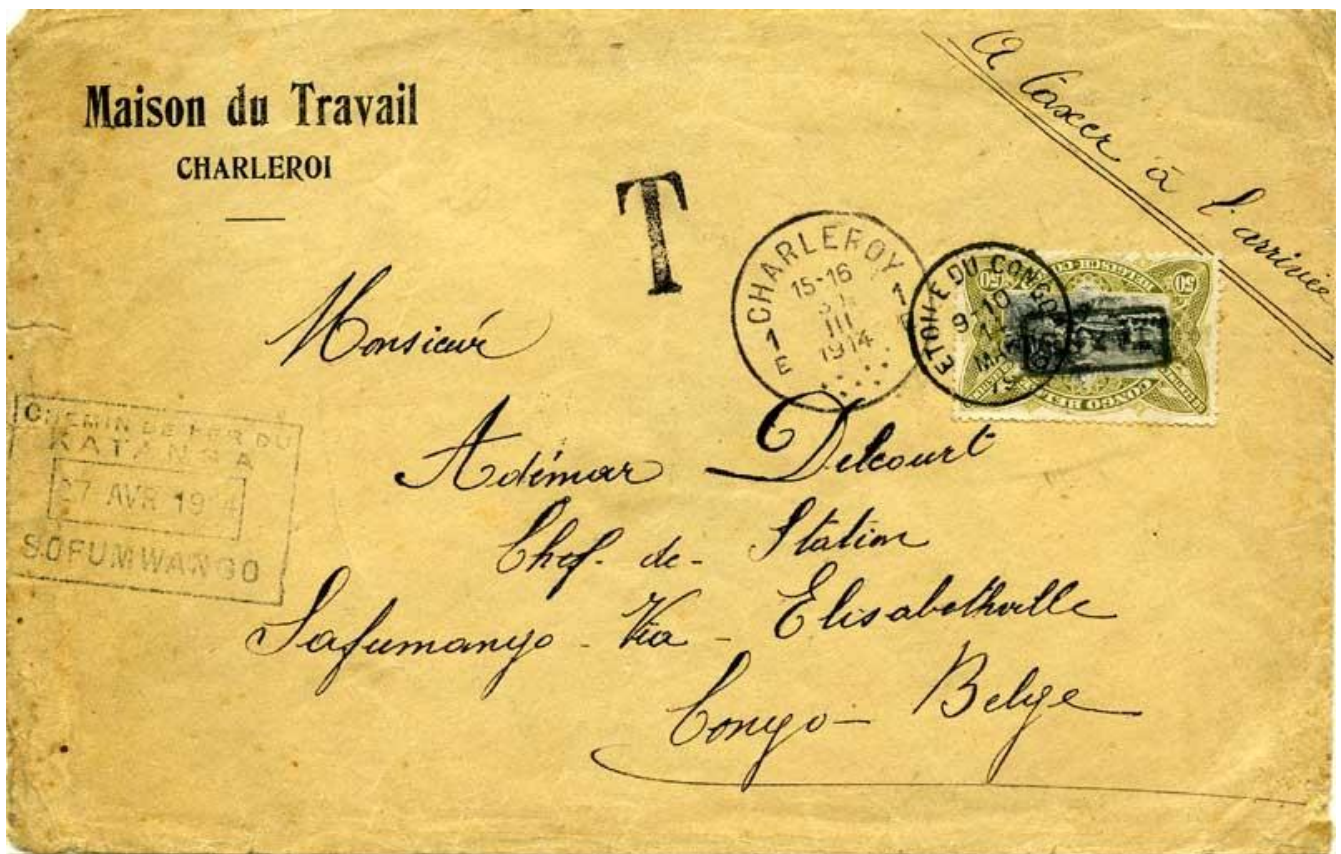 Maison du Travail
CHARLEROI
A taxer à l'arrivée
T
CHARLEROY
15-16
III
1914
1 1
E
ETOILE DU CONGO
9-10
50 50
CONGO BELGE
Monsieur
Adémar Delcourt
Chef-de-Station
Safumango-Via-Elisabethville
Congo-Belge
CHEMIN DE FER DU
KATANGA
27 AVR 1914
SOFUMWANGO